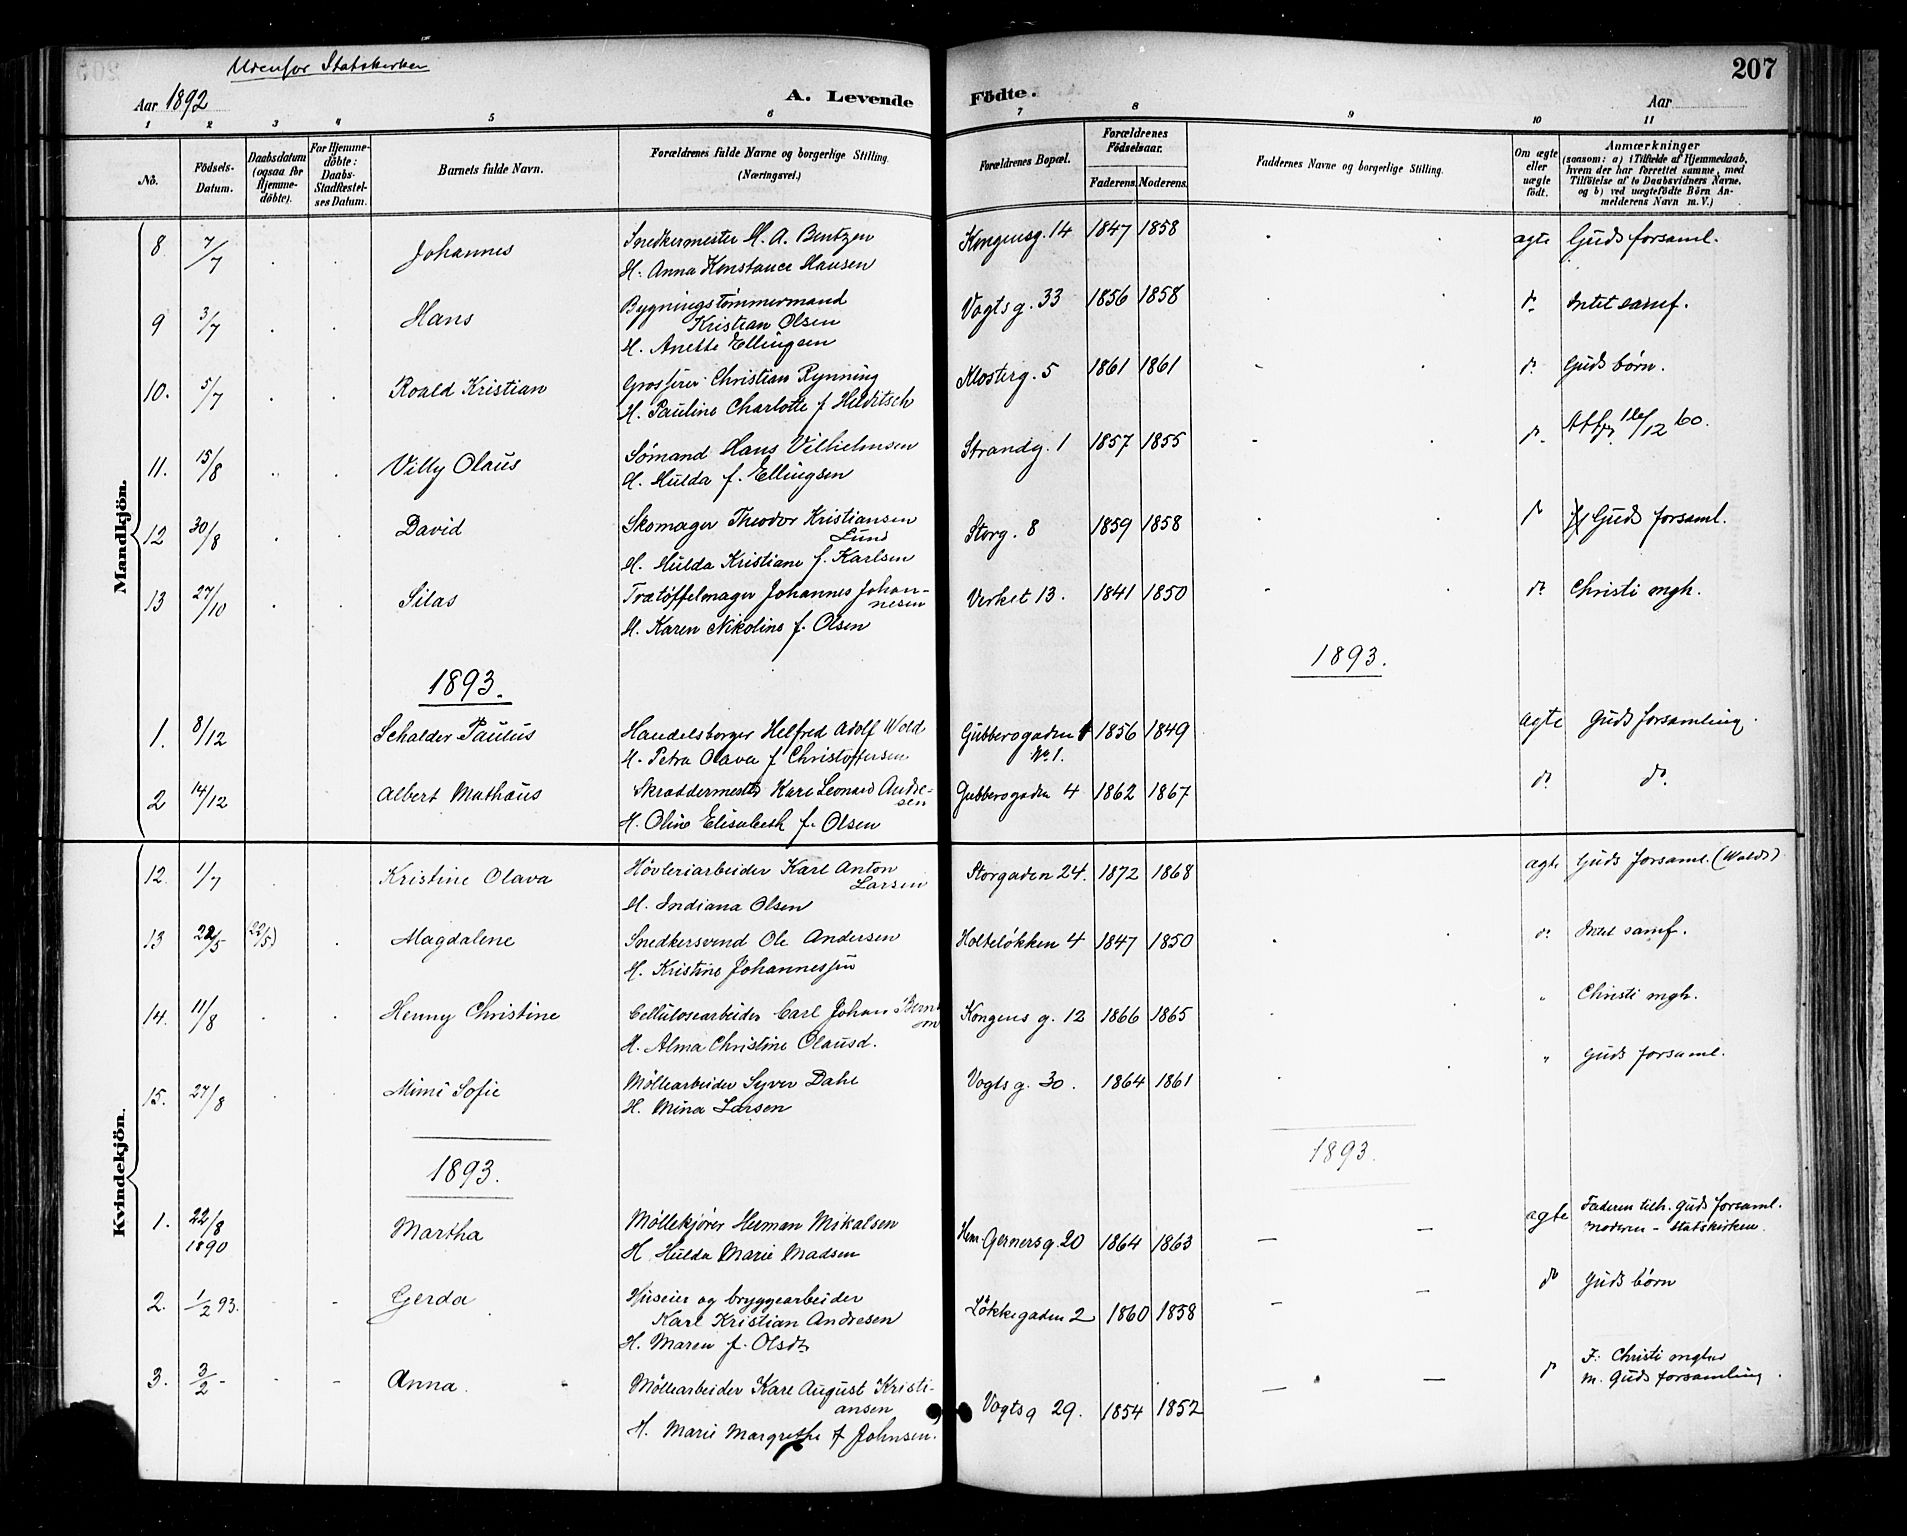 Udenfor Statskirken
207
Aar 1892
A. Levende Födte.
Aar
1 2 3 4 5 6 7 8 9 10 11
No.
Födsels-Datum.
Daabsdatum (ogsaa for Hjemme-döbte).
For Hjemme-döbte: Daabs-Stadfæstel-ses Datum.
Barnets fulde Navn.
Forældrenes fulde Navne og borgerlige Stilling.
(Næringsvei.)
Forældrenes Bopæl.
Forældrenes Födselsaar.
Faderens. Moderens.
Faddernes Navne og borgerlige Stilling.
Om ægte eller uægte födt.
Anmærkninger
(saasom: a) i Tilfælde af Hjemmedaab, hvem der har forrettet samme, med Tilföielse af to Daabsvidners Navne, og b) ved uægtefödte Börn An-melderens Navn m. V.)
Mandkjön.
8 7/7 Johannes Snedkermester M. A. Bentzen Kongensg. 14 1847 1858 ægte Guds forsaml.
H. Anna Konstance Hansen
9 3/7 Hans Bygningstømmermand Vogtsg. 33 1856 1858 do. Intet samf.
Kristian Olsen
H. Anette Ellingsen
10. 5/7 Roald Kristian Grosserer Christian Rynning Klosterg. 5 1861 1861 do. Guds børn.
H. Pauline Charlotte f. Helditsch
11. 15/8 Villy Olaus Sömand Hans Vilhelmsen Strandg. 1 1857 1855 do. 12 60.
H. Hulda f. Ellingsen
12 30/8 David Skomager Theodor Kristiansen Storg. 8 1859 1858 do Guds forsaml.
Lund
H. Hulda Kristiane f. Karlsen
13 27/10 Silas Trætøffelmager Johannes Johan- Verket 13. 1841 1850 do. Christi mgh.
nesen
H. Karen Nikoline f. Olsen
1893. 1893.
1. 8/12 Schalder Paulus Handelsborger Helfred Adolf Wold Gubberogaden 1856 1849 ægte Guds forsamling.
H. Petra Olava f Christoffersen No 1.
2 14/12 Albert Mathæus Skræddermester Karl Leonard Andre- Gubberogaden 4 1862 1867 do. do.
sen
H. Oline Elisabeth f. Olsen
Kvindekjön.
12. 1/7 Kristine Olava Høvleriarbeider Karl Anton Storgaden 24. 1872 1868 ægte Guds forsaml. (Wolds)
Larsen
H. Indiana Olsen
13 22/5 (22/5) Magdalene Snedkersvend Ole Andersen Holteløkken 4 1847 1850 do. Intet samf.
H. Kristine Johannessen
14. 11/8 Henny Christine Cellulosearbeider Carl Johan Kongens g. 12 1866 1865 " Christi mgh.
H. Alma Christine Olausd.
15. 27/8 Mimi Sofie Möllearbeider Syver Dahl Vogtsg. 30. 1864 1861 " Guds forsaml.
H. Mina Larsen
1893. 1893.
1. 22/8 1890 Martha Møllekjører Herman Mikalsen Hen. Gernersg. 20 1864 1863 ægte Faderen tilh. Guds forsaml.
H. Hulda Marie Madsen Moderen – Statskirken.
2. 1/2 93. Gerda Huseier og bryggearbeider Løkkegaden 2 1860 1858 do Guds børn
Karl Kristian Andresen
H. Maren f. Olsdtr
3. 3/2 - Anna. Möllearbeider Karl August Kristi- Vogtsg 29. 1854 1852 do F. Christi mghed
ansen M. Guds forsamling.
H. Marie Margrethe f Johnsen.